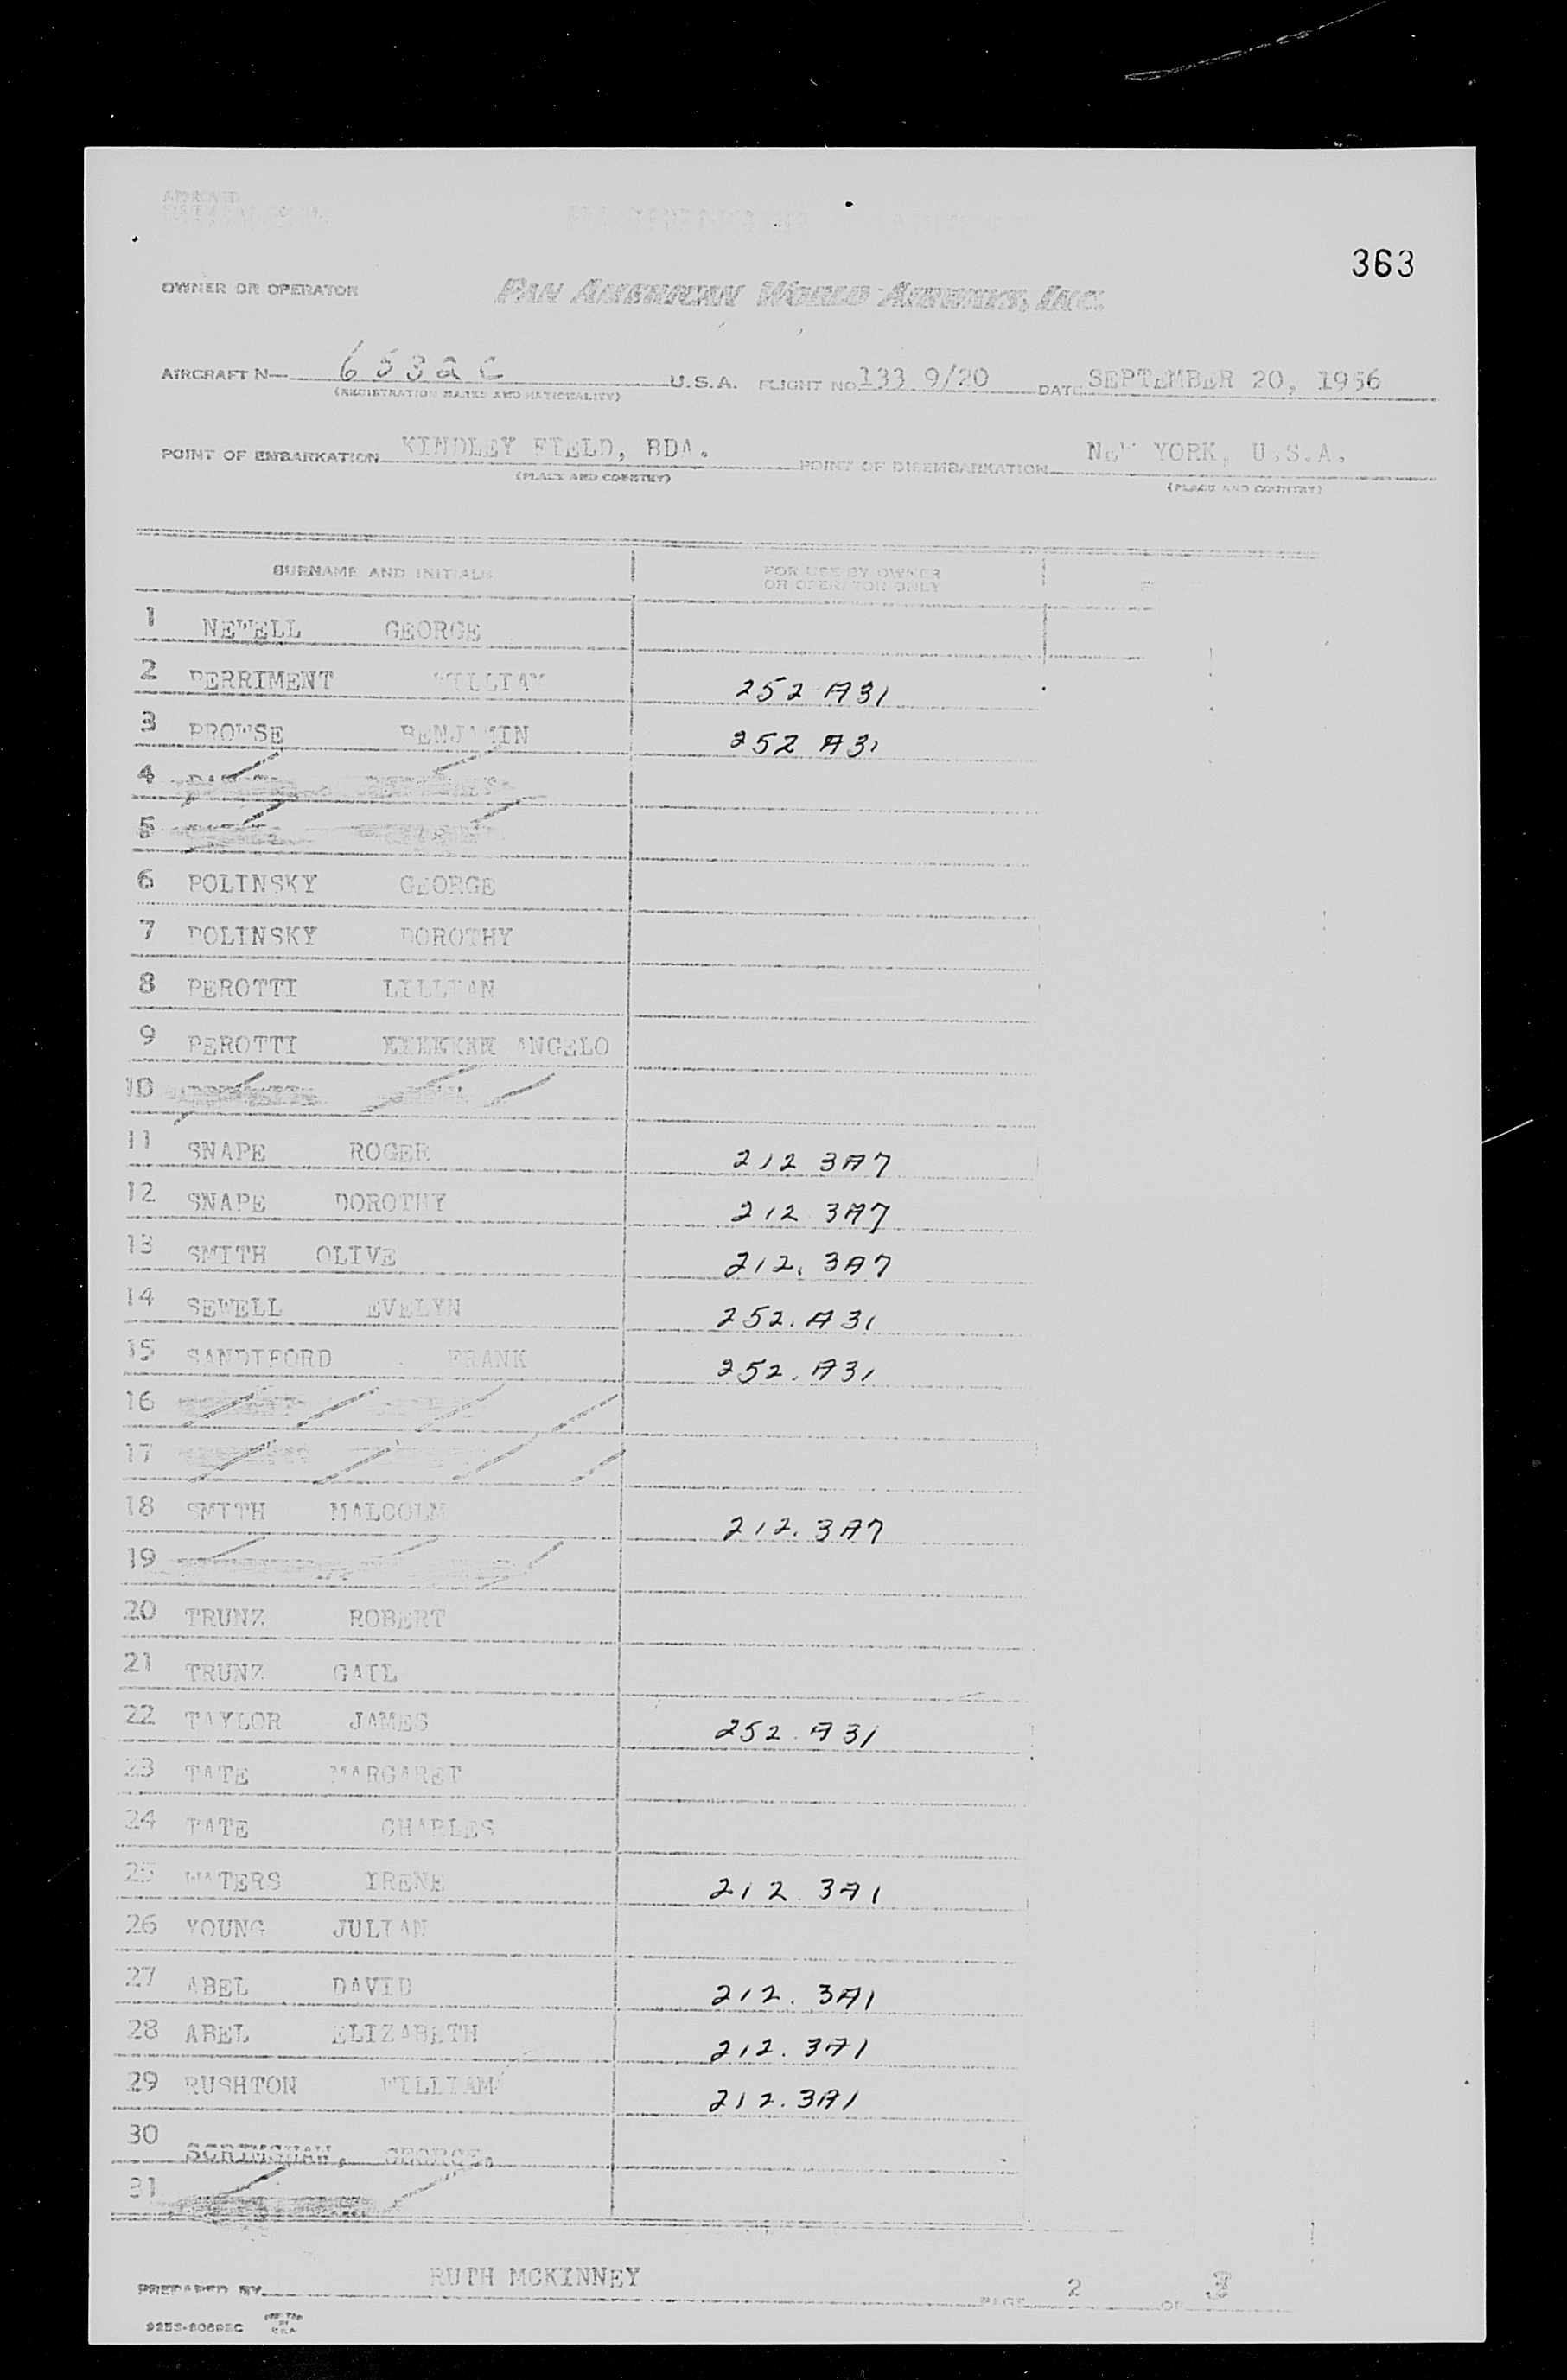 363
OWNER OR OPERATOR PAN AMERICAN WORLD AIRWAYS, INC.
AIRCRAFT N— 6532C U.S.A. FLIGHT NO 133 9/20 DATE SEPTEMBER 20, 1956
(REGISTRATION MARKS AND NATIONALITY)
POINT OF EMBARKATION KINDLEY FIELD, BDA. POINT OF DISEMBARKATION NEW YORK, U.S.A.
(PLACE AND COUNTRY) (PLACE AND COUNTRY)
SURNAME AND INITIALS FOR USE BY OWNER
OR OPERATOR ONLY
1 NEWELL GEORGE
2 PERRIMENT WILLIAM 252 A31
3 PROWSE BENJAMIN 252 A31
4
5
6 POLINSKY GEORGE
7 POLINSKY DOROTHY
8 PEROTTI LILLIAN
9 PEROTTI ANGELO
10
11 SNAPE ROGER 212 3A7
12 SNAPE DOROTHY 212 3A7
13 SMITH OLIVE 212. 3A7
14 SEWELL EVELYN 252. A31
15 SANDIFORD FRANK 252. A31
16
17
18 SMITH MALCOLM 212. 3A7
19
20 TRUNZ ROBERT
21 TRUNZ GAIL
22 TAYLOR JAMES 252. A31
23 TATE MARGARET
24 TATE CHARLES
25 WATERS IRENE 212. 3A1
26 YOUNG JULIAN
27 ABEL DAVID 212. 3A1
28 ABEL ELIZABETH 212. 3A1
29 RUSHTON WILLIAM 212. 3A1
30 SCRIMSHAW, GEORGE.
31
PREPARED BY RUTH MCKINNEY PAGE 2 OF 3